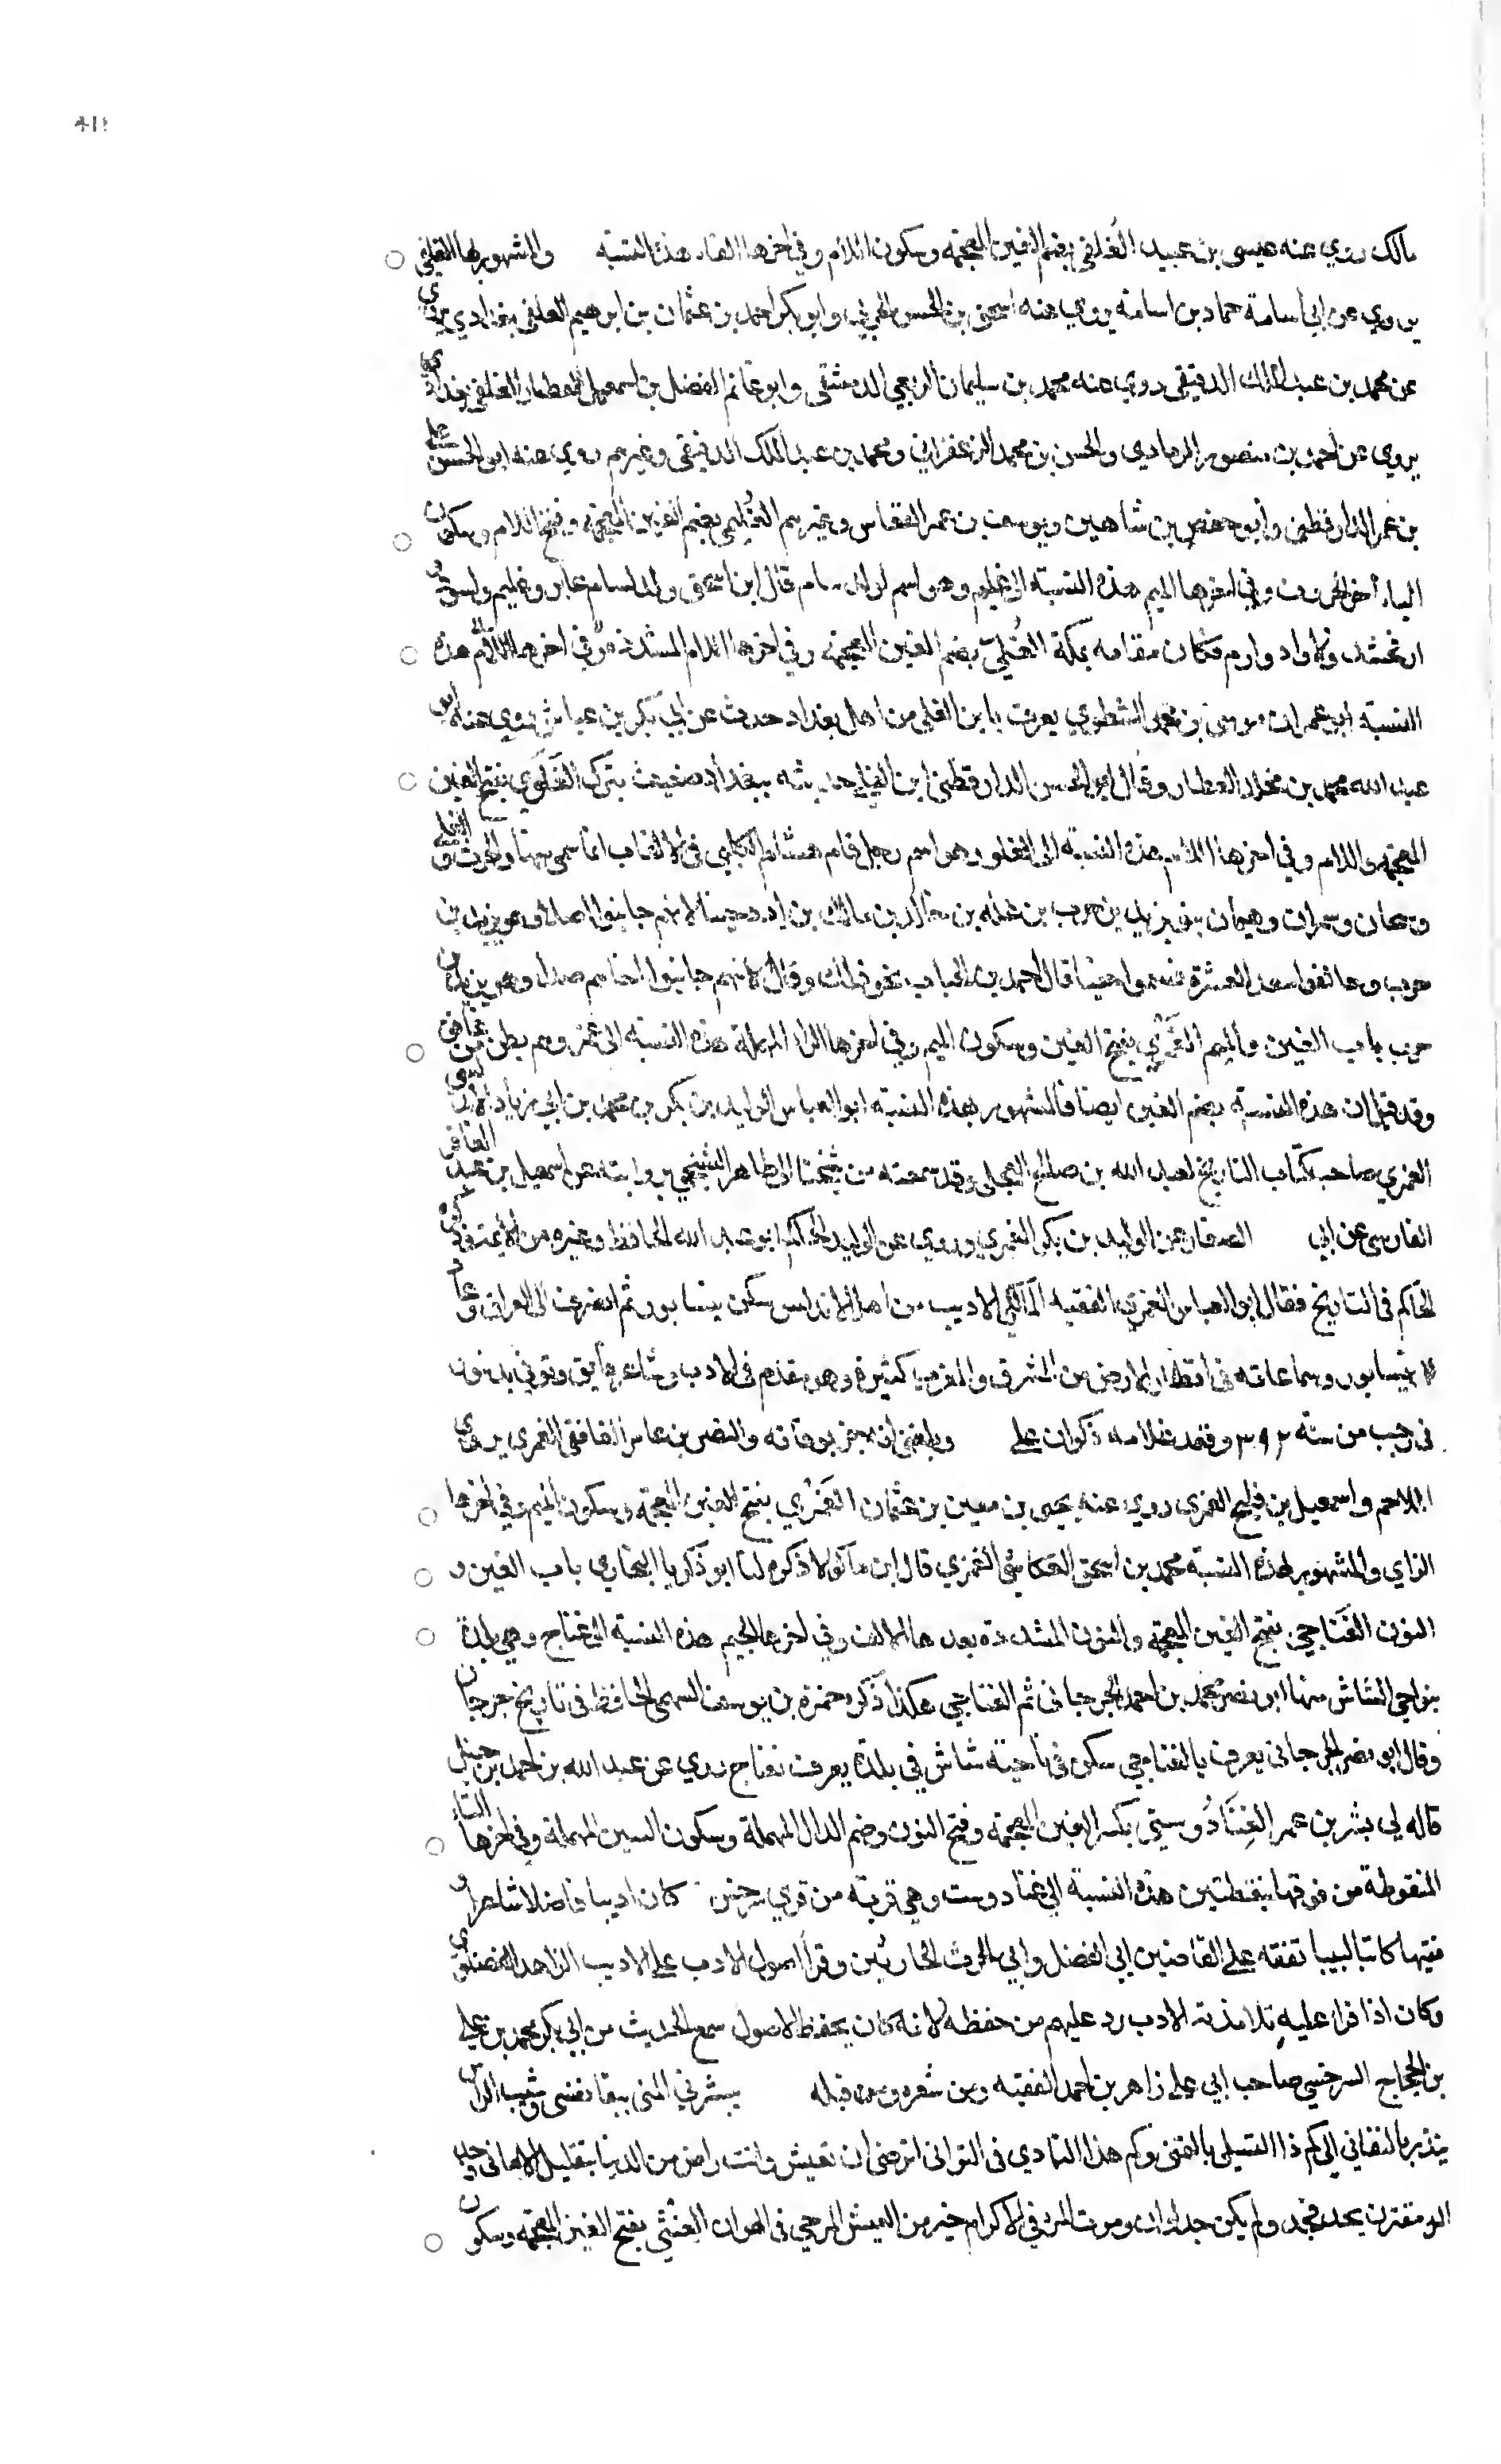 411
مالك روي عنه عيسى بن عبيد الغلفي بضم الغين المعجمة وسكون اللام وفي اخرها الفاء هذه النسبة والمشهور بها الغلفي
يروي عن ابي اسامة حماد بن اسامة يروي عنه اسحق بن الحسن الحربي وابو بكر احمد بن عثمان بن ابرهيم الغلفي بغدادي يروي
عن محمد بن عبد الملك الدقيقي روي عنه محمد بن سليمان الربعي الدمشقي وابو غانم الفضل بن اسمعيل العطار الغلفي بغدادي
يروي عن احمد بن منصور الرمادي والحسن بن محمد الزعفراني ومحمد بن عبد الملك الدقيقي وغيرهم روي عنه ابو الحسن علي
بن عمر الدارقطني وابو حفص بن شاهين ويوسف بن عمر القواس وغيرهم الغليمي بضم الغين المعجمة وفتح اللام وسكون
الياء اخر الحروف وفي اخرها الميم هذه النسبة الى غليم وهو اسم لولد سام قال ابن اسحق ولد لسام عابر وغليم واسود
ارفخشد ولاود وارم فكان مقامه بمكة الغلي بضم الغين المعجمة وفي اخرها اللام المشددة هذه
النسبة ابو عمران موسى بن محمد الشطوي يعرف بابن الغلي من اهل بغداد حدث عن ابي بكر بن عياش روي عنه ابو
عبد الله محمد بن مخلد العطار وقال ابو الحسن الدارقطني ابن الغلي حديثه ببغداد ضعيف يترك الغلوي بفتح الغين
المعجمة واللام وفي اخرها اللام هذه النسبة الى الغلو وهو اسم رجل قال هشام الكلبي في الالقاب انما سمي منبه والحرث والغلي
وسحان وشمران وهفان بنو يزيد بن حرب بن علة بن خالد بن مالك بن ادد جنبا لانهم جانبوا اصلا يزيد بن
حرب وحالفوا سعد العشيرة فسموا جنبا قال احمد بن الحباب نحو ذلك وقال لانهم جانبوا اخاهم صداء وهو بن يزيد بن
حرب باب الغين والميم الغمري بفتح الغين وسكون الميم وفي اخرها الراء المهملة هذه النسبة الى غمر وهم بطن من غافق
وقد قيل ان هذه النسبة بضم الغين ايضا فالمشهور بهذه النسبة ابو العباس الوليد بن بكر بن محمد بن ابي زياد الاندلسي
الغمري صاحب كتاب التاريخ لعبد الله بن صالح العجلي وقد سمعته من شيخنا ابي طاهر السنجي بروايته عن اسمعيل بن عبد الغافر
الفارسي عن ابي الصفار عن الوليد بن بكر الغمري وروي عن الوليد الحاكم ابو عبد الله الحافظ وغيره من الائمة وذكره
الحاكم في التاريخ فقال ابو العباس الغمري الفقيه المالكي الاديب من اهل الاندلس سكن نيسابور ثم انصرف الى العراق وعاد
الى نيسابور وسماعاته في اقطار الارض من المشرق والمغرب كثيرة وهو مقدم في الادب وشاعر فايق وتوفي بدينور
في رجب من سنة ٣٩٢ وفقد غلامه ذكوان على وبلغني انه بوفاته والنضر بن عامر الغافقي الغمري يروي
الملاحم واسمعيل بن فليح الغمري روي عنه يحيى بن معين بن عثمان الغمزي بفتح الغين المعجمة وسكون الميم وفي اخرها
الزاي والمشهور بهذه النسبة محمد بن اسحق العكاشي الغمزي قال ابن ماكولا ذكره لنا ابو زكريا البخاري باب الغين و
النون الغناجي بفتح الغين المعجمة والنون المشددة بعدها الالف وفي اخرها الجيم هذه النسبة الى غناج وهي بلدة
بنواحي الشاش منها ابو نصر محمد بن احمد الجرجاني ثم الغناجي هكذا ذكره حمزة بن يوسف السهمي الحافظ في تاريخ جرجان
وقال ابو نصر الجرجاني يعرف بالغناجي سكن في ناحية شاش في بلدة يعرف بغناج روي عن عبد الله بن احمد بن حنبل
قاله لي بشر بن عمر الغنادوستي بكسر الغين المعجمة وفتح النون وضم الدال المهملة وسكون السين المهملة وفي اخرها التاء
المنقوطة من فوقها بنقطتين هذه النسبة الى غنادوست وهي قرية من قري سرخس كان اديبا فاضلا شاعرا و
فقيها كاتبا لبيبا تفقه على القاضيين ابي الفضل وابي الحرث الحارثيين وقرا اصول الادب على الاديب الزاهد الفضلوي
وكان اذا قرا عليه تلامذته الادب رد عليهم من حفظه لانه كان يحفظ الاصول سمع الحديث من ابي بكر محمد بن علي
بن الحجاج السرخسي صاحب ابي علي زاهر بن احمد الفقيه ومن شعره وسمعه قبله يبشرني المنى ببقا نفسي وشيب الراس
ينذر بالتفاني الى كم ذا التسلي بالتمني وكم هذا التمادي في التواني اترضى ان تعيش وانت راض من الدنيا بتقليل الاماني وجد
المرء مقترن بجد فجد ولم يكن جد اوان وموت المرء في الاكرام خير من العيش المرجي في الهوان الغنثي بفتح الغين المعجمة وسكون